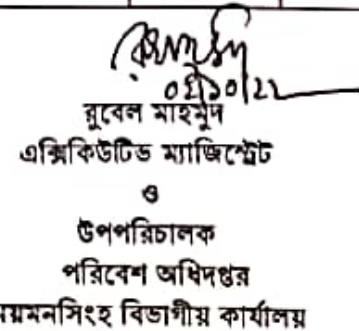 ০৫/১০/২২
রুবেল মাহমুদ
এক্সিকিউটিভ ম্যাজিস্ট্রেট
ও
উপপরিচালক
পরিবেশ অধিদপ্তর
ময়মনসিংহ বিভাগীয় কার্যালয়